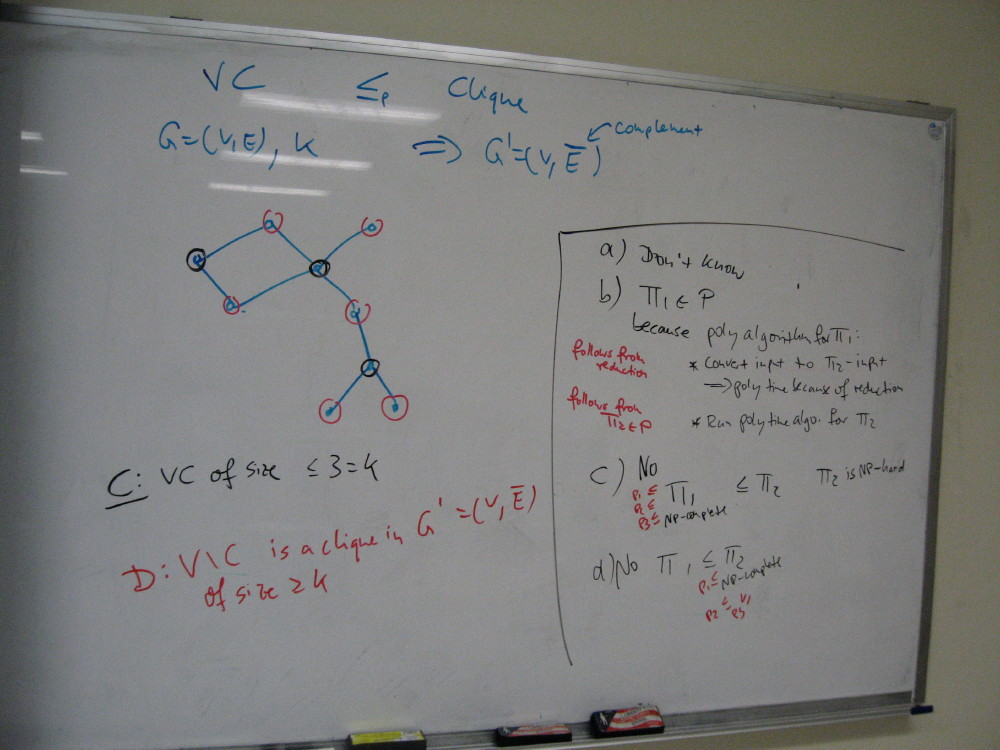 VC ≤p Clique
G=(V,E), k ⟹ G'=(V, E̅)
complement
C: VC of size ≤ 3=k
D: V\C is a clique in G'=(V, E̅)
of size ≥ k
a) Don't know
b) Π1 ∈ P
because poly algorithm for Π1:
follows from
reduction
* Convert input to Π2-input
⟹ poly time because of reduction
follows from
Π2 ∈ P
* Run poly time algo. for Π2
c) No
Π1 ≤ Π2 Π2 is NP-hard
P1 ≤
P2 ≤
P3 ≤ NP-complete
d) No Π1 ≤ Π2
P1 ≤ NP-complete
P2 P3